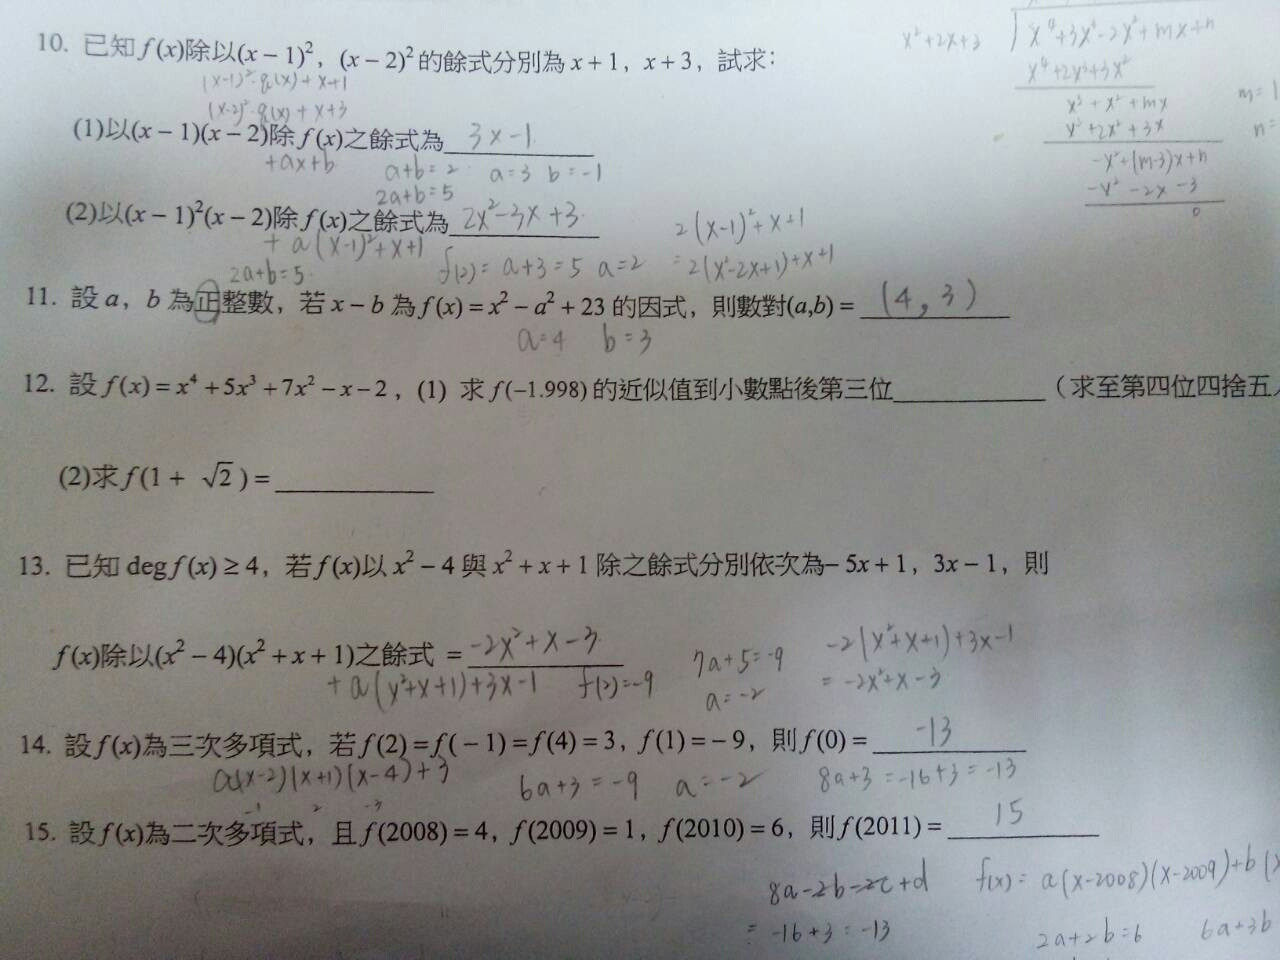 10. 已知 f(x)除以(x－1)²，(x－2)²的餘式分別為 x＋1，x＋3，試求：
(x-1)²·q(x)+x+1
(x-2)²·q(x)+x+3
(1)以(x－1)(x－2)除 f(x)之餘式為 3x-1
+ax+b a+b=2 a=3 b=-1
2a+b=5
(2)以(x－1)²(x－2)除 f(x)之餘式為 2x²-3x+3
+a(x-1)²+x+1 f(2)=a+3=5 a=2
2a+b=5
2(x-1)²+x+1
=2(x²-2x+1)+x+1
x²+2x+3
-2x²+mx+n
x⁴+2x³+3x²
x³+x²+mx
x³+2x²+3x
-x²+(m-3)x+n
-x²-2x-3
0
m=1
n=
11. 設 a，b 為正整數，若 x－b 為 f(x)＝x²－a²＋23 的因式，則數對(a,b)＝ (4,3)
a=4 b=3
12. 設 f(x)＝x⁴＋5x³＋7x²－x－2，(1) 求 f(－1.998) 的近似值到小數點後第三位（求至第四位四捨五
(2)求 f(1＋√2)＝
13. 已知 deg f(x)≥4，若 f(x)以 x²－4 與 x²＋x＋1 除之餘式分別依次為－5x＋1，3x－1，則
f(x)除以(x²－4)(x²＋x＋1)之餘式＝ -2x²+x-3
+a(x²+x+1)+3x-1 f(2)=-9
7a+5=-9
a=-2
-2(x²+x+1)+3x-1
=-2x²+x-3
14. 設 f(x)為三次多項式，若 f(2)＝f(－1)＝f(4)＝3，f(1)＝－9，則 f(0)＝ -13
a(x-2)(x+1)(x-4)+3 6a+3=-9 a=-2 8a+3=-16+3=-13
-1 2 -3
15. 設 f(x)為二次多項式，且 f(2008)＝4，f(2009)＝1，f(2010)＝6，則 f(2011)＝ 15
8a-2b-2c+d
=-16+3=-13
f(x)=a(x-2008)(x-2009)+b(x
2a+2b=6 6a+3b